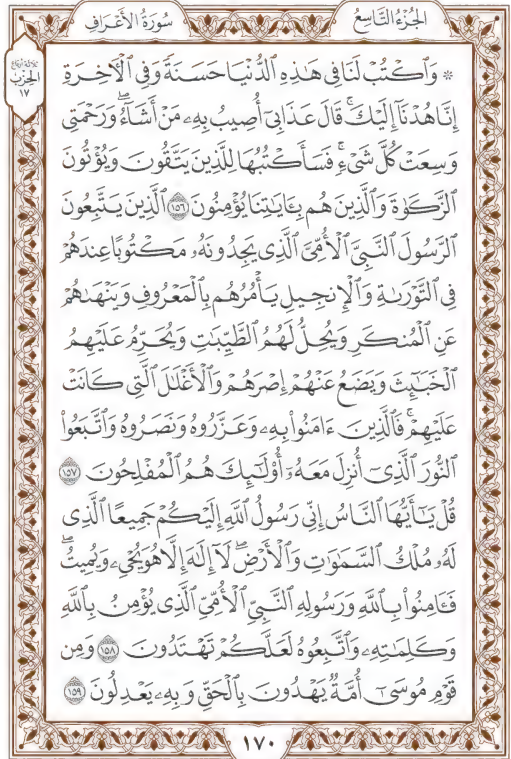 الجُزْءُ التَّاسِعُ
سُورَةُ الأَعْرَافِ
ثلاثة أرباع
الحِزْب
١٧
۞ وَٱكْتُبْ لَنَا فِى هَٰذِهِ ٱلدُّنْيَا حَسَنَةً وَفِى ٱلْأَخِرَةِ
إِنَّا هُدْنَآ إِلَيْكَ ۚ قَالَ عَذَابِىٓ أُصِيبُ بِهِۦ مَنْ أَشَآءُ ۖ وَرَحْمَتِى
وَسِعَتْ كُلَّ شَىْءٍ ۚ فَسَأَكْتُبُهَا لِلَّذِينَ يَتَّقُونَ وَيُؤْتُونَ
ٱلزَّكَوٰةَ وَٱلَّذِينَ هُم بِـَٔايَٰتِنَا يُؤْمِنُونَ ١٥٦ ٱلَّذِينَ يَتَّبِعُونَ
ٱلرَّسُولَ ٱلنَّبِىَّ ٱلْأُمِّىَّ ٱلَّذِى يَجِدُونَهُۥ مَكْتُوبًا عِندَهُمْ
فِى ٱلتَّوْرَىٰةِ وَٱلْإِنجِيلِ يَأْمُرُهُم بِٱلْمَعْرُوفِ وَيَنْهَىٰهُمْ
عَنِ ٱلْمُنكَرِ وَيُحِلُّ لَهُمُ ٱلطَّيِّبَٰتِ وَيُحَرِّمُ عَلَيْهِمُ
ٱلْخَبَٰٓئِثَ وَيَضَعُ عَنْهُمْ إِصْرَهُمْ وَٱلْأَغْلَٰلَ ٱلَّتِى كَانَتْ
عَلَيْهِمْ ۚ فَٱلَّذِينَ ءَامَنُوا۟ بِهِۦ وَعَزَّرُوهُ وَنَصَرُوهُ وَٱتَّبَعُوا۟
ٱلنُّورَ ٱلَّذِىٓ أُنزِلَ مَعَهُۥٓ ۙ أُو۟لَٰٓئِكَ هُمُ ٱلْمُفْلِحُونَ ١٥٧
قُلْ يَٰٓأَيُّهَا ٱلنَّاسُ إِنِّى رَسُولُ ٱللَّهِ إِلَيْكُمْ جَمِيعًا ٱلَّذِى
لَهُۥ مُلْكُ ٱلسَّمَٰوَٰتِ وَٱلْأَرْضِ ۖ لَآ إِلَٰهَ إِلَّا هُوَ يُحْىِۦ وَيُمِيتُ ۖ
فَـَٔامِنُوا۟ بِٱللَّهِ وَرَسُولِهِ ٱلنَّبِىِّ ٱلْأُمِّىِّ ٱلَّذِى يُؤْمِنُ بِٱللَّهِ
وَكَلِمَٰتِهِۦ وَٱتَّبِعُوهُ لَعَلَّكُمْ تَهْتَدُونَ ١٥٨ وَمِن
قَوْمِ مُوسَىٰٓ أُمَّةٌ يَهْدُونَ بِٱلْحَقِّ وَبِهِۦ يَعْدِلُونَ ١٥٩
١٧٠